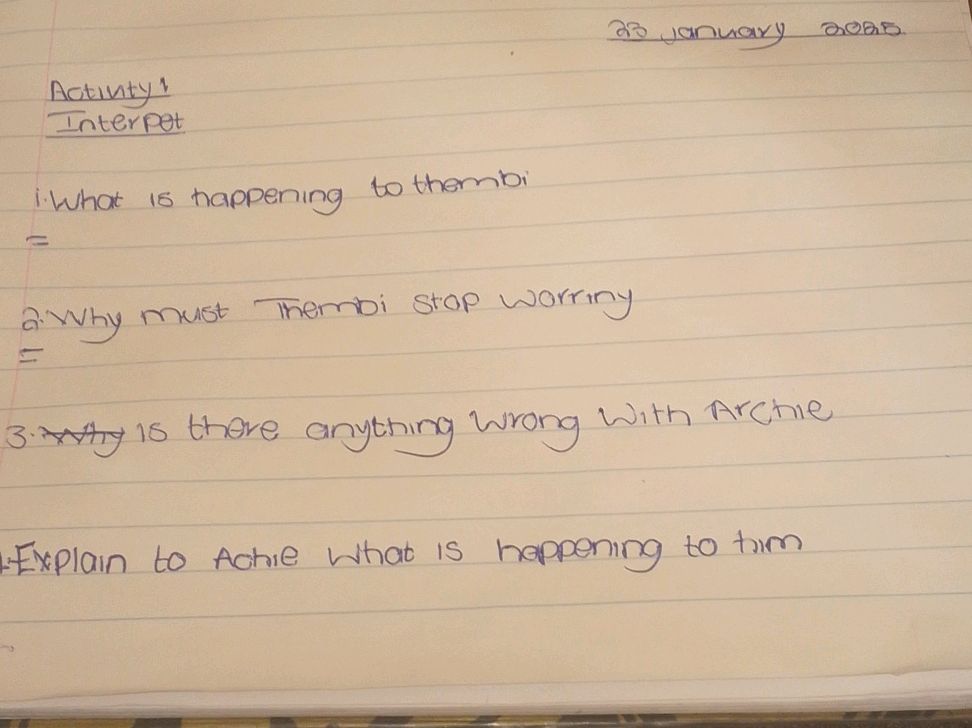 23 January 2025
Activity 1
Interpet
1. What is happening to thembi
=
2. Why must Thembi stop worriny
=
3. Why is there anything wrong with Archie
Explain to Achie what is happening to him